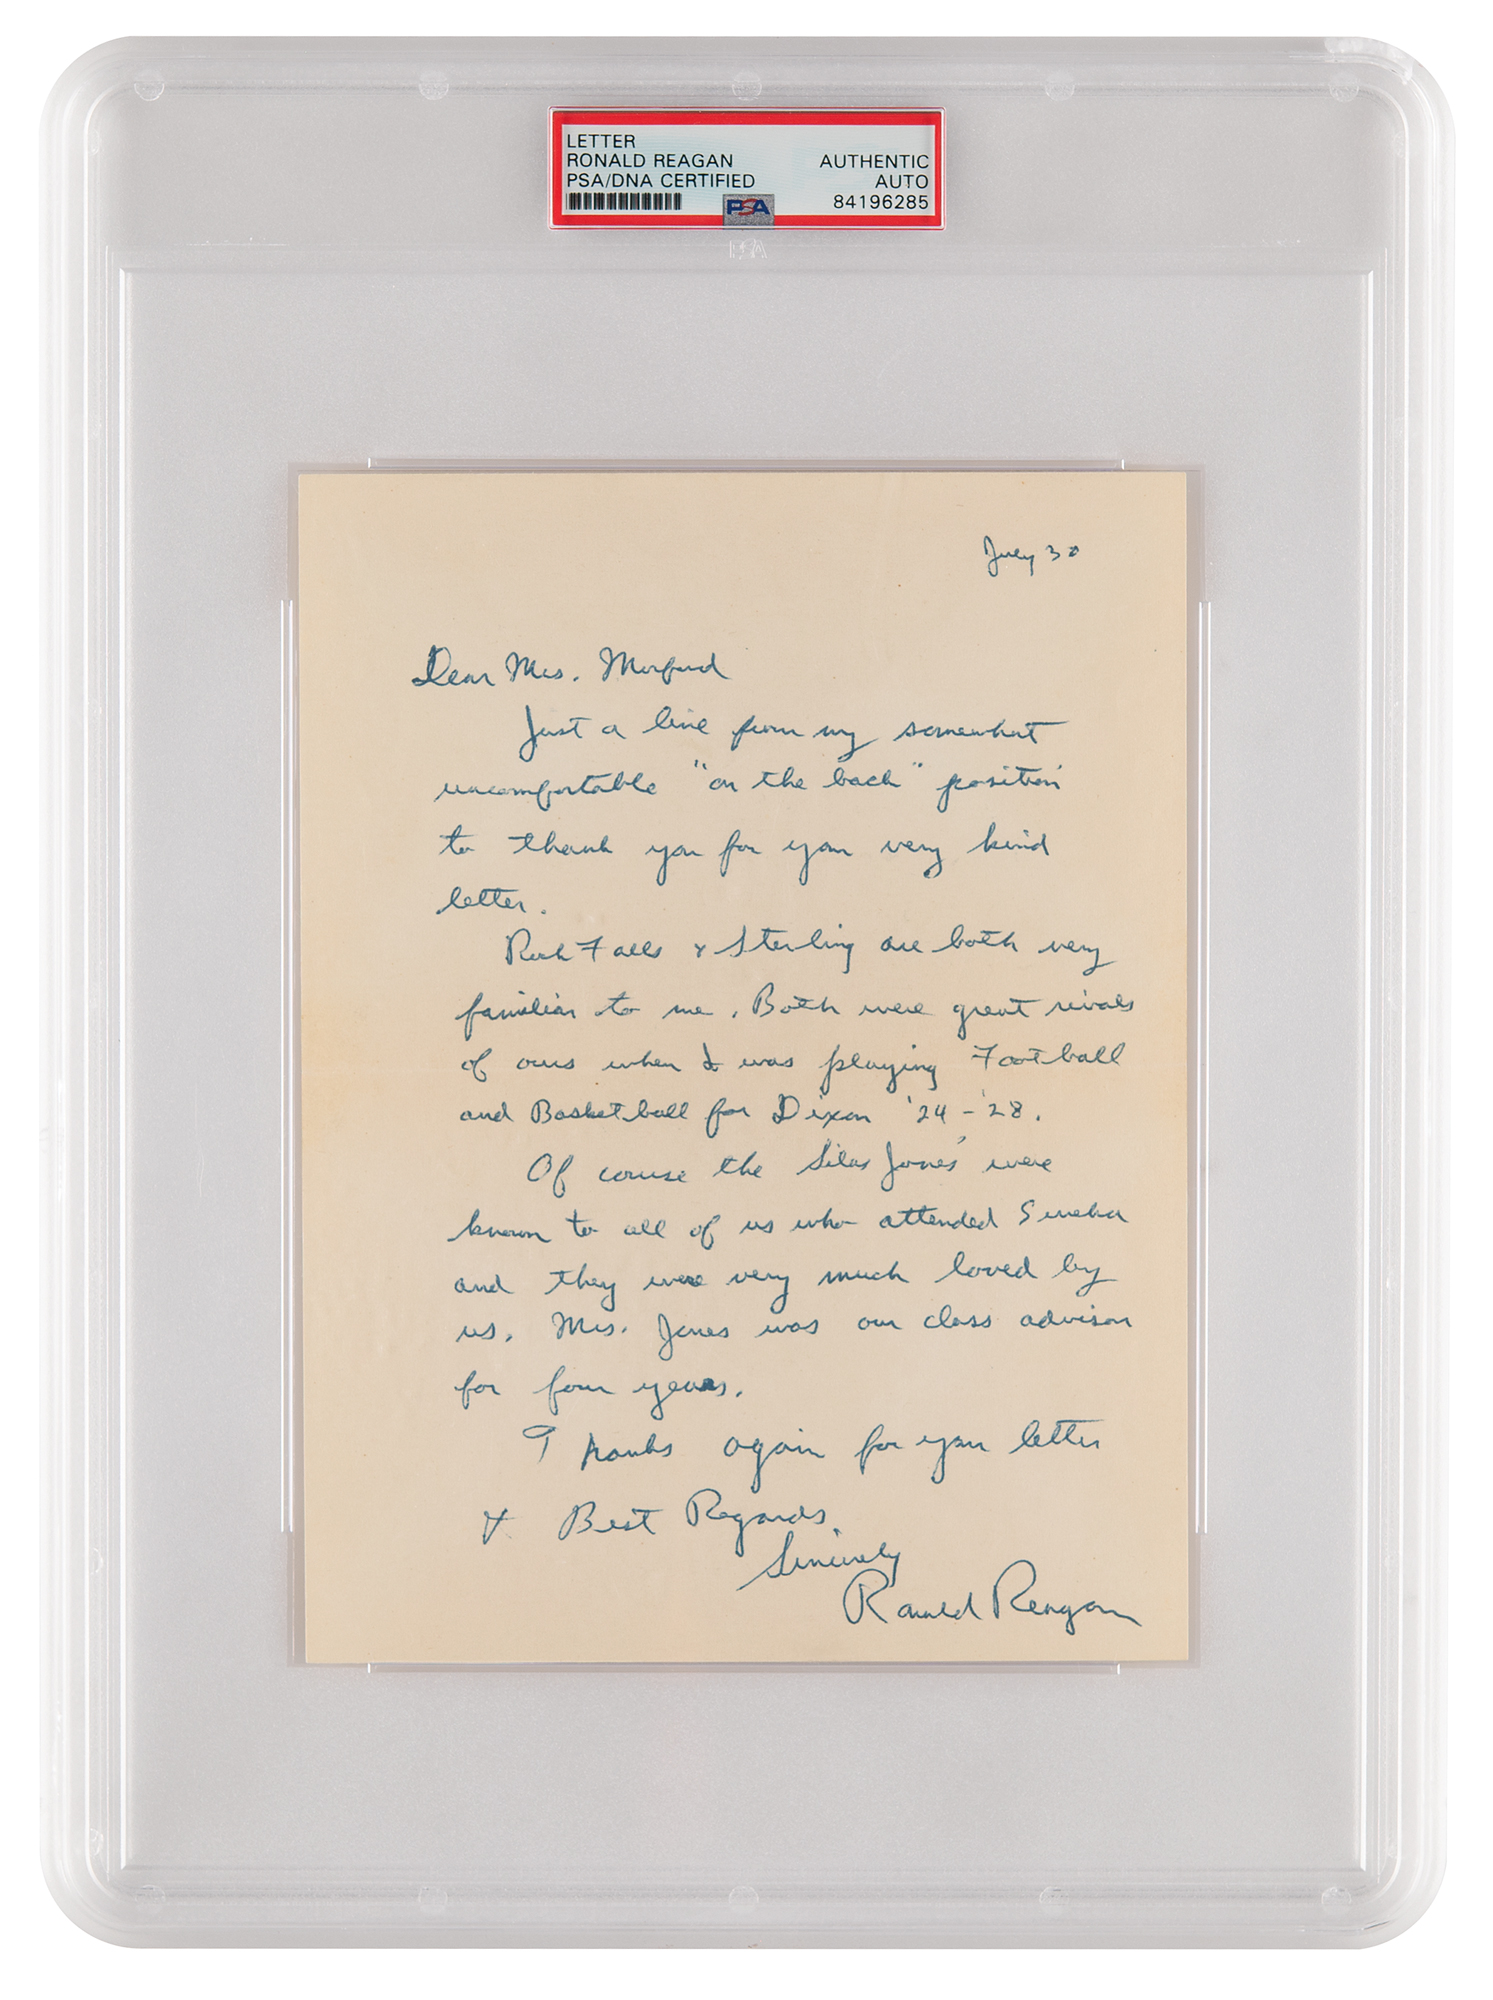 LETTER
RONALD REAGAN AUTHENTIC
PSA/DNA CERTIFIED AUTO
84196285
PSA
PSA
July 30
Dear Mrs. Morford
Just a line from my somewhat
uncomfortable "on the back" position
to thank you for your very kind
letter.
Rock Falls & Sterling are both very
familiar to me. Both were great rivals
of ours when I was playing Football
and Basketball for Dixon '24 - '28.
Of course the Silas Jones' were
known to all of us who attended Eureka
and they were very much loved by
us. Mrs. Jones was our class advisor
for four years.
Thanks again for your letter
& Best Regards
Sincerely
Ronald Reagan